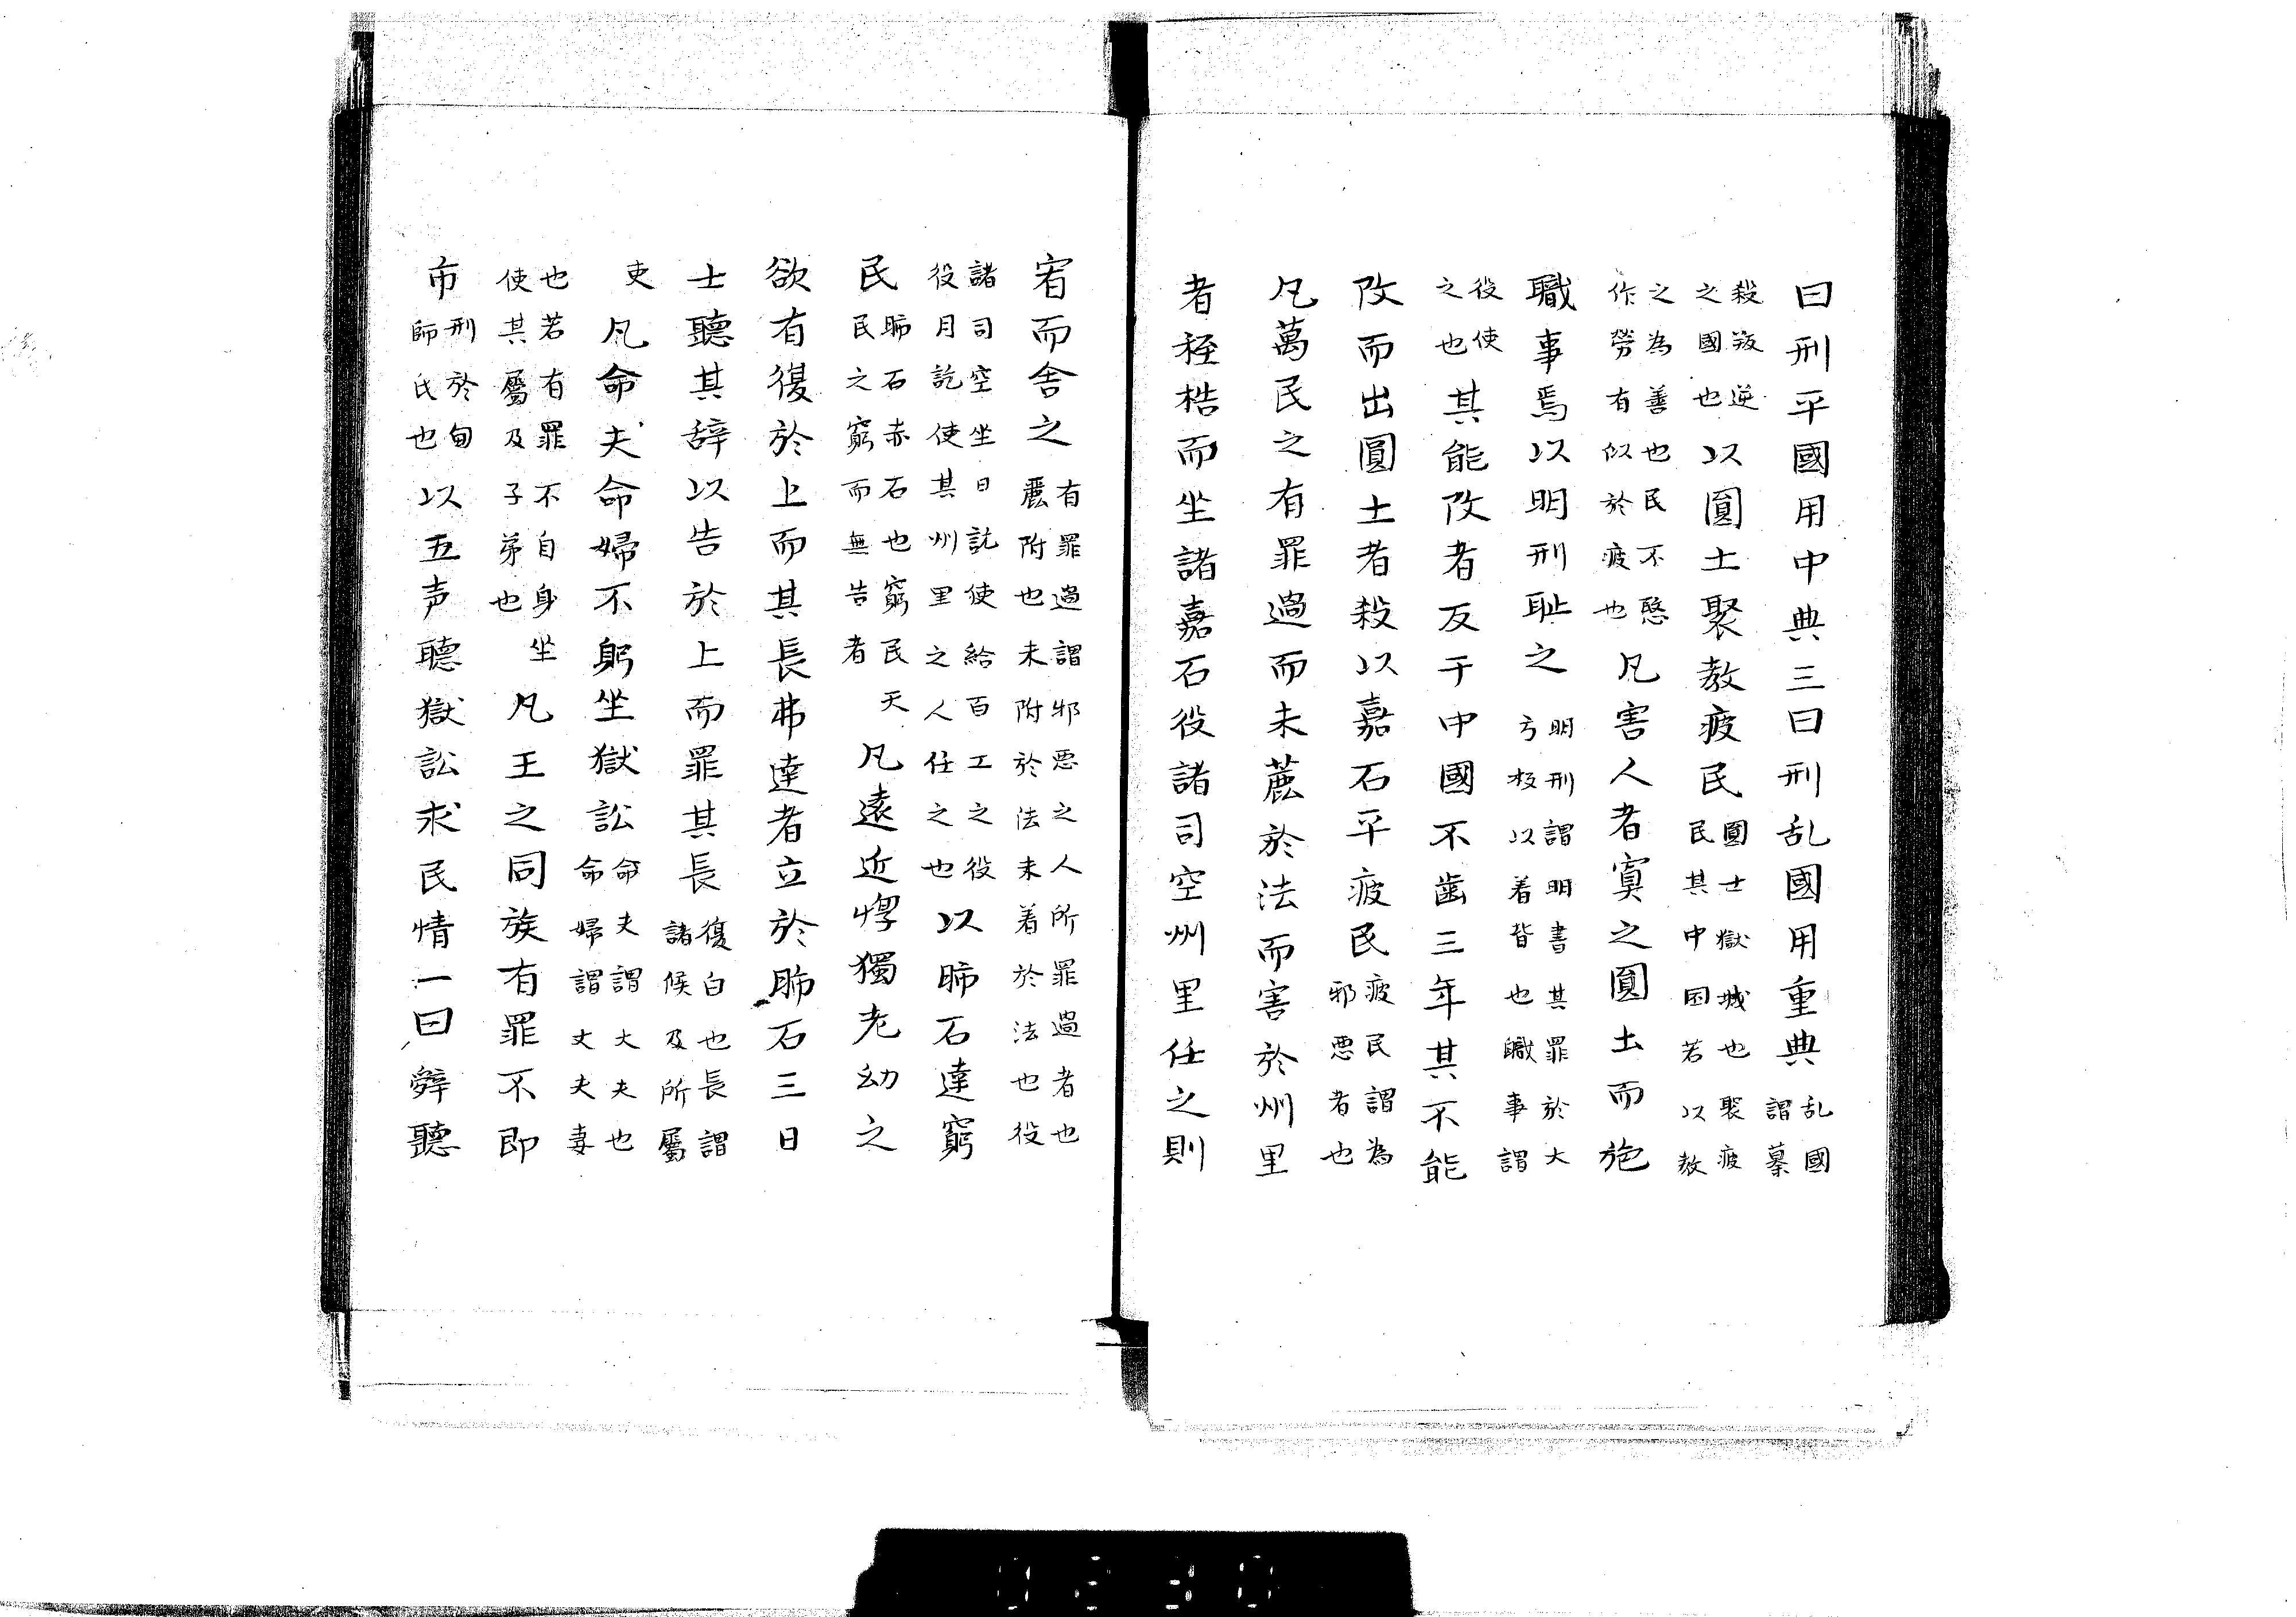 曰刑平國用中典三曰刑乱國用重典乱國謂
殺叛逆之國也以圓土聚教疲民圓士獄城也聚疲民其中困若以教
之為善也民不愍作勞有似於疲也凡害人者寘之圓土而施
職事焉以明刑耻之明刑謂明書其罪於大方板以着背也職事謂
役使之也其能改者反于中國不齒三年其不能
改而出圓土者殺以嘉石平疲民疲民謂為邪悪者也
凡萬民之有罪過而未麗於法而害於州里
者桎梏而坐諸嘉石役諸司空州里任之則
宥而舍之有罪過謂邪悪之人所罪過者也麗附也未附於法未着於法也役
諸司空坐日訖使給百工之役役月訖使其州里之人任之也以肺石達窮
民肺石赤石也窮民天民之窮而無告者凡遠近惸獨老幼之
欲有復於上而其長弗達者立於肺石三日
士聽其辞以告於上而罪其長復白也長謂諸候及所屬
吏凡命夫命婦不躬坐獄訟命夫謂大夫也命婦謂丈夫妻
也若有罪不自身坐使其屬及子弟也凡王之同族有罪不即
市刑於甸師氏也以五声聽獄訟求民情一曰辤聽